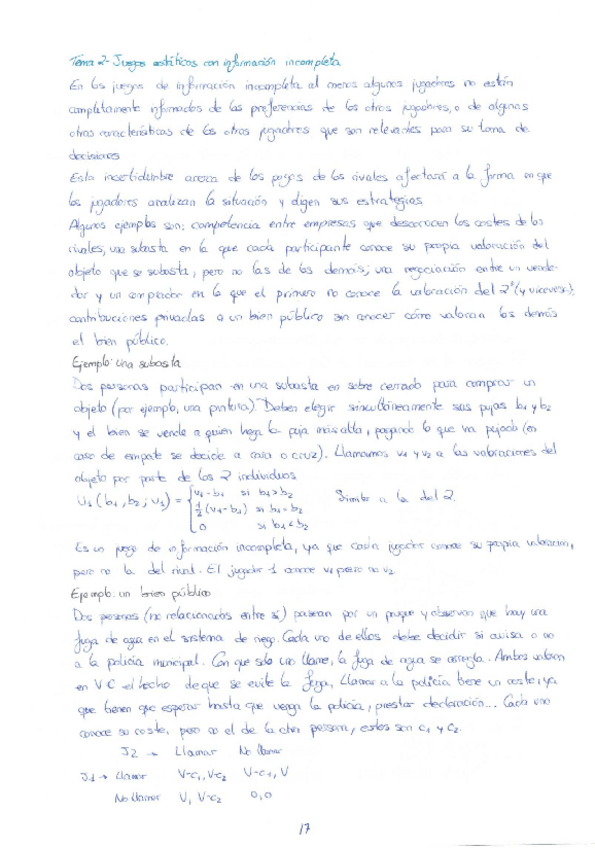 Tema 2- Juegos estáticos con información incompleta
En los juegos de información incompleta al menos algunos jugadores no están
completamente informados de las preferencias de los otros jugadores, o de algunas
otras características de los otros jugadores que son relevantes para su toma de
decisiones
Esta incertidumbre acerca de los pagos de los rivales afectará a la forma en que
los jugadores analizan la situación y eligen sus estrategias
Algunos ejemplos son: competencia entre empresas que desconocen los costes de los
rivales; una subasta en la que cada participante conoce su propia valoración del
objeto que se subasta, pero no las de los demás; una negociación entre un vende-
dor y un comprador en la que el primero no conoce la valoración del 2º (y viceversa);
contribuciones privadas a un bien público sin conocer cómo valoran los demás
el bien público.
Ejemplo: una subasta
Dos personas participan en una subasta en sobre cerrado para comprar un
objeto (por ejemplo, una pintura). Deben elegir simultáneamente sus pujas b1 y b2
y el bien se vende a quien haga la puja más alta, pagando lo que ha pujado (en
caso de empate se decide a cara o cruz). Llamamos v1 y v2 a las valoraciones del
objeto por parte de los 2 individuos
U1 (b1, b2; v1) = { v1 - b1 si b1 > b2
1/2 (v1 - b1) si b1 = b2 Similar a la del 2.
0 si b1 < b2
Es un juego de información incompleta, ya que cada jugador conoce su propia valoración,
pero no la del rival. El jugador 1 conoce v1 pero no v2.
Ejemplo: un bien público
Dos personas (no relacionadas entre sí) pasean por un parque y observan que hay una
fuga de agua en el sistema de riego. Cada uno de ellos debe decidir si avisa o no
a la policía municipal. Con que solo uno llame, la fuga de agua se arregla. Ambos valoran
en V el hecho de que se evite la fuga, llamar a la policía tiene un coste, ya
que tienen que esperar hasta que venga la policía, prestar declaración... Cada uno
conoce su coste, pero no el de la otra persona, estos son c1 y c2.
J2 → Llamar No llamar
J1 → Llamar V-c1, V-c2 V-c1, V
No llamar V, V-c2 0,0
17